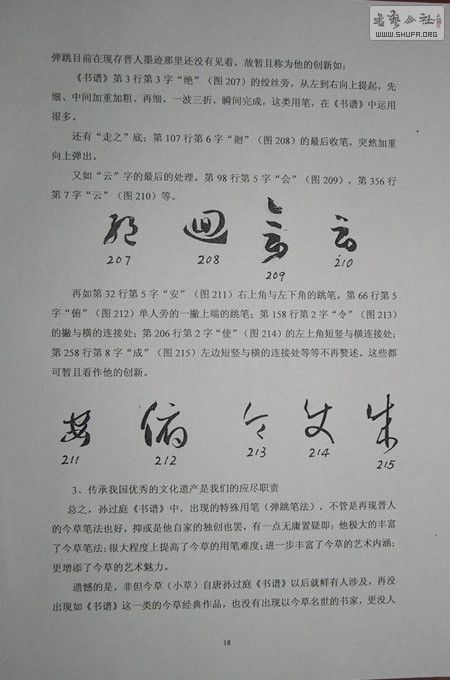 书艺公社
WWW.SHUFA.ORG
弹跳目前在现存晋人墨迹那里还没有见着,故暂且称为他的创新如:
《书谱》第3行第3字“绝”(图207)的绞丝旁,从左到右向上提起,先
细、中间加重加粗、再细,一波三折,瞬间完成,这类用笔,在《书谱》中运用
很多。
还有“走之”底:第107行第6字“廻”(图208)的最后收笔,突然加重
向上弹出。
又如“云”字的最后的处理。第98行第5字“会”(图209),第356行
第7字“云”(图210)等。
207 208 209 210
再如第32行第5字“安”(图211)右上角与左下角的跳笔。第66行第5
字“俯”(图212)单人旁的一撇上端的跳笔;第158行第2字“令”(图213)
的撇与横的连接处;第206行第2字“使”(图214)的左上角短竖与横连接处;
第258行第8字“成”(图215)左边短竖与横的连接处等等不再赘述。这些都
可暂且看作他的创新。
211 212 213 214 215
3、传承我国优秀的文化遗产是我们的应尽职责
总之,孙过庭《书谱》中,出现的特殊用笔(弹跳笔法),不管是再现晋人
的今草笔法也好,抑或是他自家的独创也罢,有一点无庸置疑即:他极大的丰富
了今草笔法;很大程度上提高了今草的用笔难度;进一步丰富了今草的艺术内涵;
更增添了今草的艺术魅力。
遗憾的是,非但今草(小草)自唐孙过庭《书谱》以后就鲜有人涉及,再没
出现如《书谱》这一类的今草经典作品,也没有出现以今草名世的书家,更没人
18